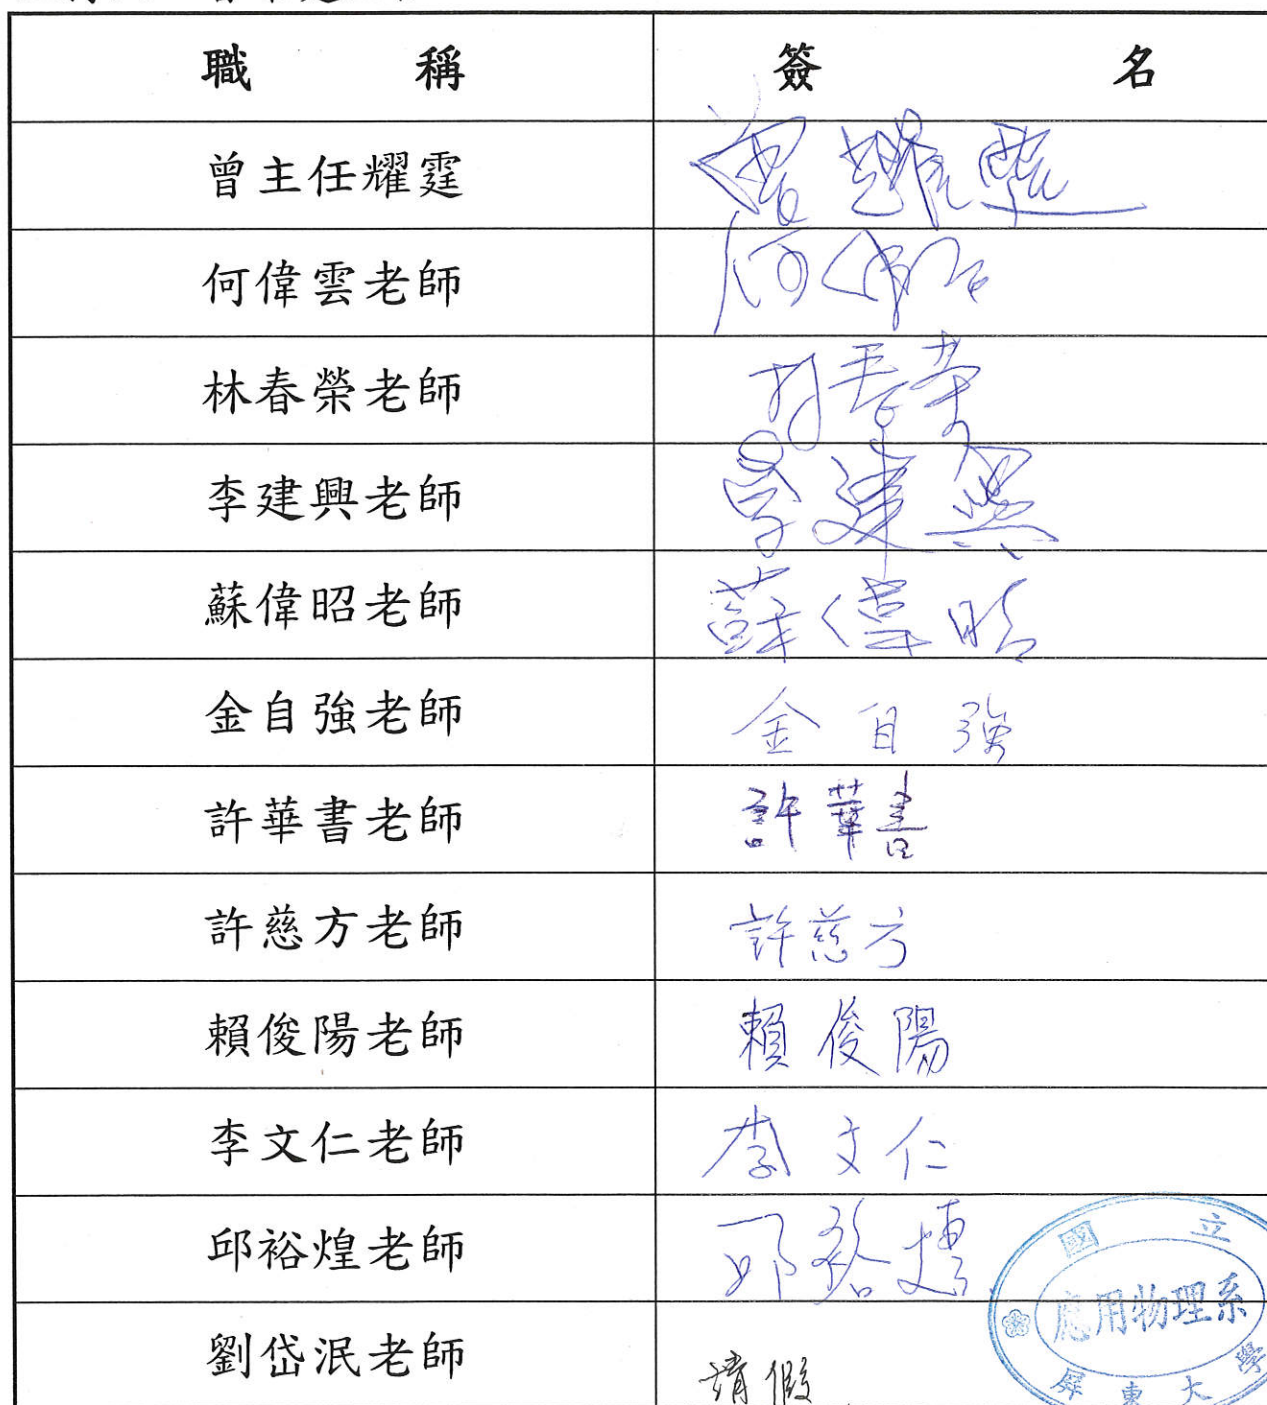 職稱 簽名
曾主任耀霆 曾耀霆
何偉雲老師 何偉雲
林春榮老師 林春榮
李建興老師 李建興
蘇偉昭老師 蘇偉昭
金自強老師 金自強
許華書老師 許華書
許慈方老師 許慈方
賴俊陽老師 賴俊陽
李文仁老師 李文仁
邱裕煌老師 邱裕煌
劉岱泯老師 請假
國立屏東大學
應用物理系